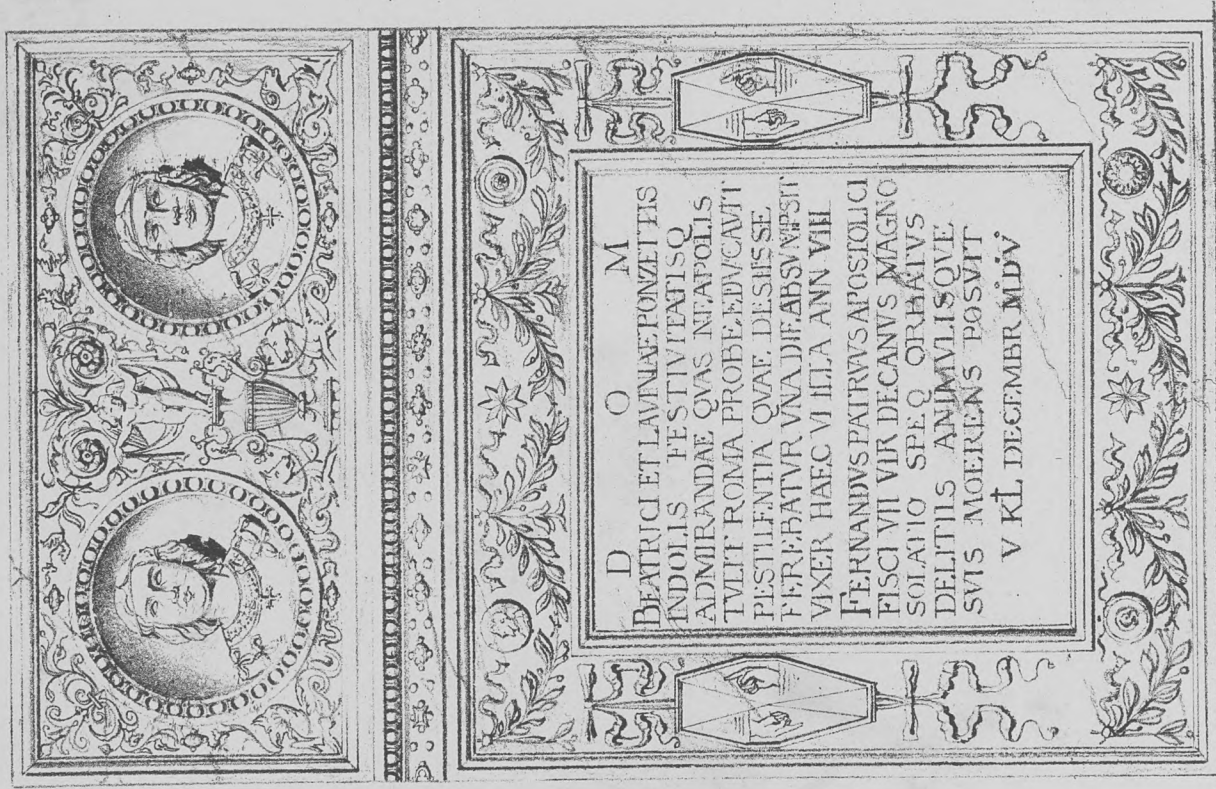 D O M
BEATRICI ET LAVINIÆ PONZETTIS
INDOLIS FESTIVITATISQ
ADMIRANDAE QVAS NEAPOLIS
TVLIT ROMA PROBE EDVCAVIT
PESTILENTIA QVAE DESIISSE
FEREBATVR VNA DIE ABSVMPSIT
VIXER HAEC VI ILLA ANN VIII
FERNANDVS PATRVVS APOSTOLICI
FISCI VII VIR DECANVS MAGNO
SOLATIO SPEQ ORBATVS
DELITIIS ANIMVLISQVE
SVIS MOERENS POSVIT
V KL DECEMBR M.D.V